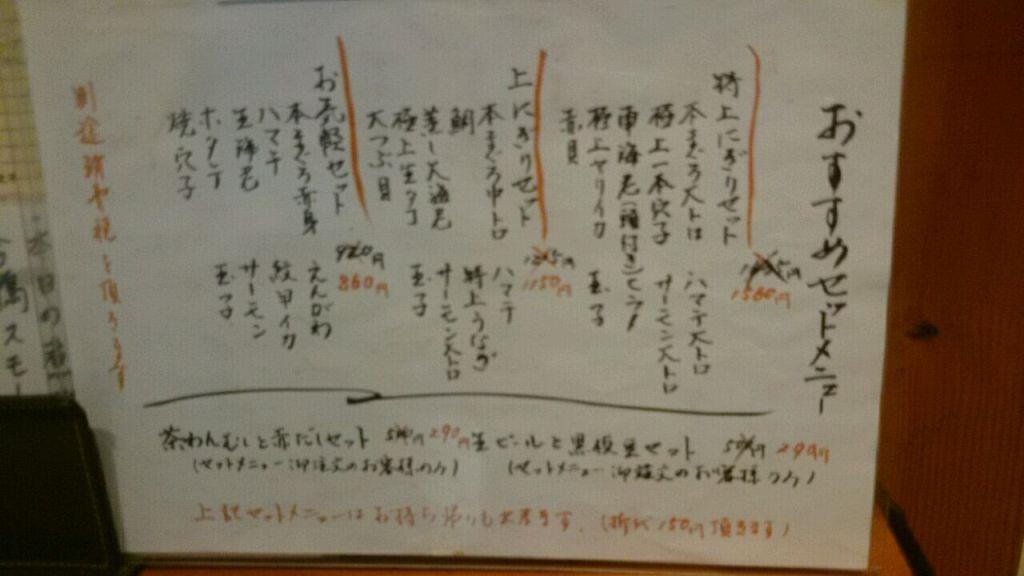 おすすめセットメニュー
特上にぎりセット
1580円
本まぐろ大トロ
極上一本穴子
車海老(頭付き)
極上ヤリイカ
赤貝
ハマチ大トロ
サーモン大トロ
玉子
上にぎりセット
1150円
本まぐろ中トロ
鯛
蒸し大海老
極上生タコ
大つぶ貝
ハマチ
特上うなぎ
サーモン大トロ
玉子
お気軽セット
920円
860円
本まぐろ赤身
ハマチ
甘海老
ホタテ
焼穴子
えんがわ
紋甲イカ
サーモン
玉子
別途消費税を頂きます
茶わんむしと赤だしセット 290円
(セットメニュー御注文のお客様のみ)
生ビールと黒枝豆セット 290円
(セットメニュー御注文のお客様のみ)
上記セットメニューはお持ち帰りも出来ます。(折代150円頂きます)
本日の
スモー